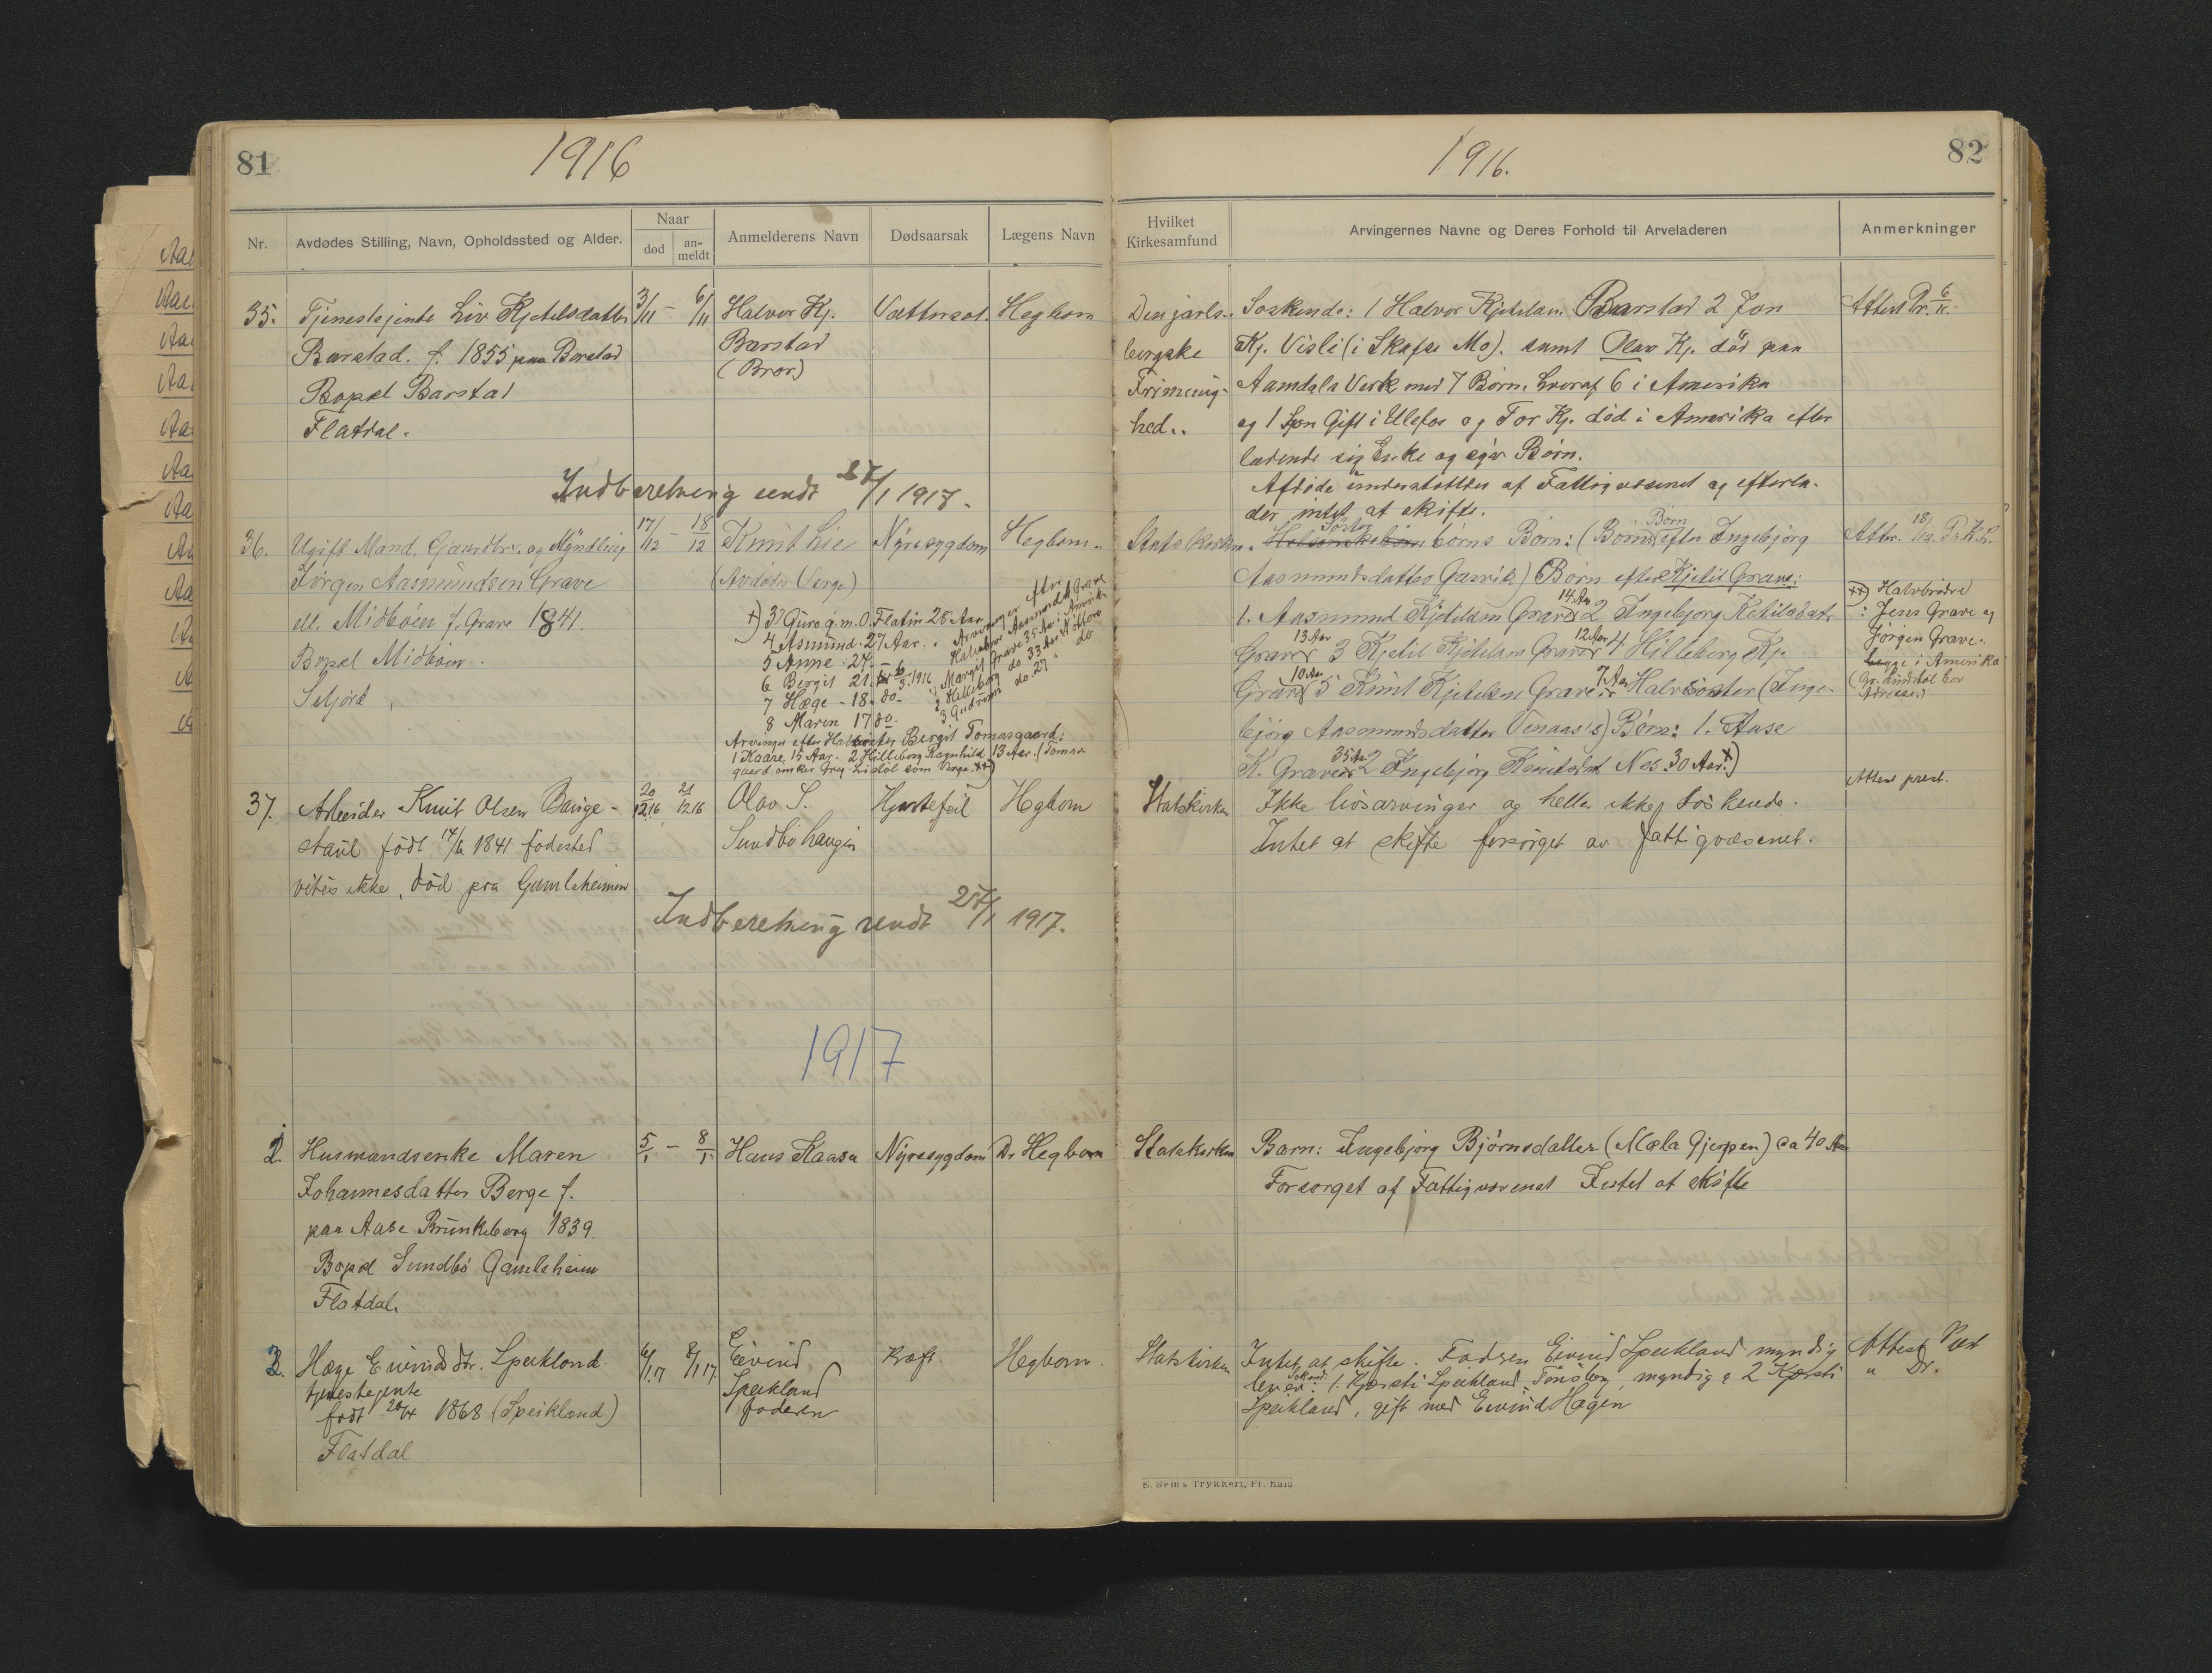 81
1916
Nr.
Avdødes Stilling, Navn, Opholdssted og Alder.
Naar
død
an-
meldt
Anmelderens Navn
Dødsaarsak
Lægens Navn
35.
Tjenestejente Liv Kjetilsdatter
Barstad. f. 1855 paa Barstad
Bopæl Barstad
Flatdal.
3/11 - 6/11
Halvor Kj.
Barstad
(Bror)
Vattersot.
Hegbom
Indberetning sendt 27/1 1917.
36.
Ugift Mand, Gaardbr. og Myndling
Jörgen Aasmundsen Grave
ell. Midböen f. Grave 1841.
Bopæl Midböen.
Seljord
17/12 - 18/12
Knut Lie
(Avdödes Verge)
Nyresygdom
Hegbom.
+) 3) Guro g.m. O. Flatin 28 Aar
4 Asmund. 27 Aar.
5 Anne - 24. -
6 Bergit 21.
7 Hæge - 18. do.
8 Maren 17 do.
Arvinger efter
Halvbror Aasmund Grave
1) Margit Grave 35 Aar i Amerika
2 Helleborg do 33 Aar
3. Gudrun do. 27. do
Arvinger efter Halvsöster Bergit Tomasgaard:
1 Kaare 15 Aar. 2 Hilleborg Ragnhild 13 Aar. (Tomas-
gaard önsker Greg. Lidtöl som Verge. ++)
37.
Arbeider Knut Olsen Bauge-
staul födt 14/6 1841 födested
vites ikke, död paa Gamleheimen
20/12 16 21/12 16
Olav S.
Sundbö haugen
Hjertefeil
Hegbom
Indberetning sendt 27/1 1917.
1917
1.
Husmandsenke Maren
Johannesdatter Berge f.
paa Aase Brunkeberg 1839.
Bopæl Sundbö Gamleheim
Flatdal.
5/1 - 8/1
Hans Kaasa
Nyresygdom
Dr Hegbom
2.
Hæge Eivindsdtr. Speikland.
tjenestejente
født 20/4 1868 (Speikland)
Flatdal
6/1.17 8/1 17.
Eivind
Speikland
faderen
Kræft.
Hegbom.
82
1916.
Hvilket
Kirkesamfund
Arvingernes Navne og Deres Forhold til Arveladeren
Anmerkninger
Den jarls-
bergske
Frimenig-
hed..
Söskende: 1 Halvor Kjetilsen Barstad 2 Jon
Kj. Visli (i Skafse Mo). samt Olav Kj. död paa
Aamdals Verk med 7 Börn, hvoraf 6 i Amerika
og 1 Sön Gift i Ulefos og Tor Kj. död i Amerika efter
ladende sig Enke og Börn.
Afdöde understöttes af Fattigvæsenet og efterla-
der intet at skifte.
Attest Pr. 6/11.
Statskirken.
Söster
börns Börn: (Börn efter Ingebjörg
Aasmundsdatter Garvik) Börn efter Kjetil Grave:
1. Aasmund Kjetilsen Grave 14 Aar 2 Ingebjörg Ketilsdatr
Grave 13 Aar 3 Kjetil Kjetilsen Grave 12 Aar 4 Hilleborg Kj.
Grave 10 Aar 5 Knut Kjetilsen Grave 7 Aar Halvsöster (Inge-
björg Aasmundsdatter Venaas's) Börn: 1. Aase
K. Grave 35 Aar 2 Ingebjörg Knutsdt Nes 30 Aar. +)
Attr. 18/12.
++) Halvbrödre
: Jens Grave og
Jörgen Grave.
begge i Amerika
(Gr. Lindtöl har
Adresse)
Statskirken
Ikke livsarvinger og heller ikke söskende.
Intet at skifte forsörget av fattigvæsenet.
Attest prest.
Statskirken
Barn: Ingebjörg Björnsdatter (Mæla Gjerpen) ca 40 Aar
Forsorget af Fattigvæsenet Intet at skifte
Statskirken
Intet at skifte. Fadren Eivind Speikland myndig
lever. Søskend: 1. Kjersti Speikland Tönsberg, myndig & 2 Kjersti
Speikland, gift med Eivind Hagen
Attest Prest
" Dr.
E. Sem's Trykkeri, Fr.hald